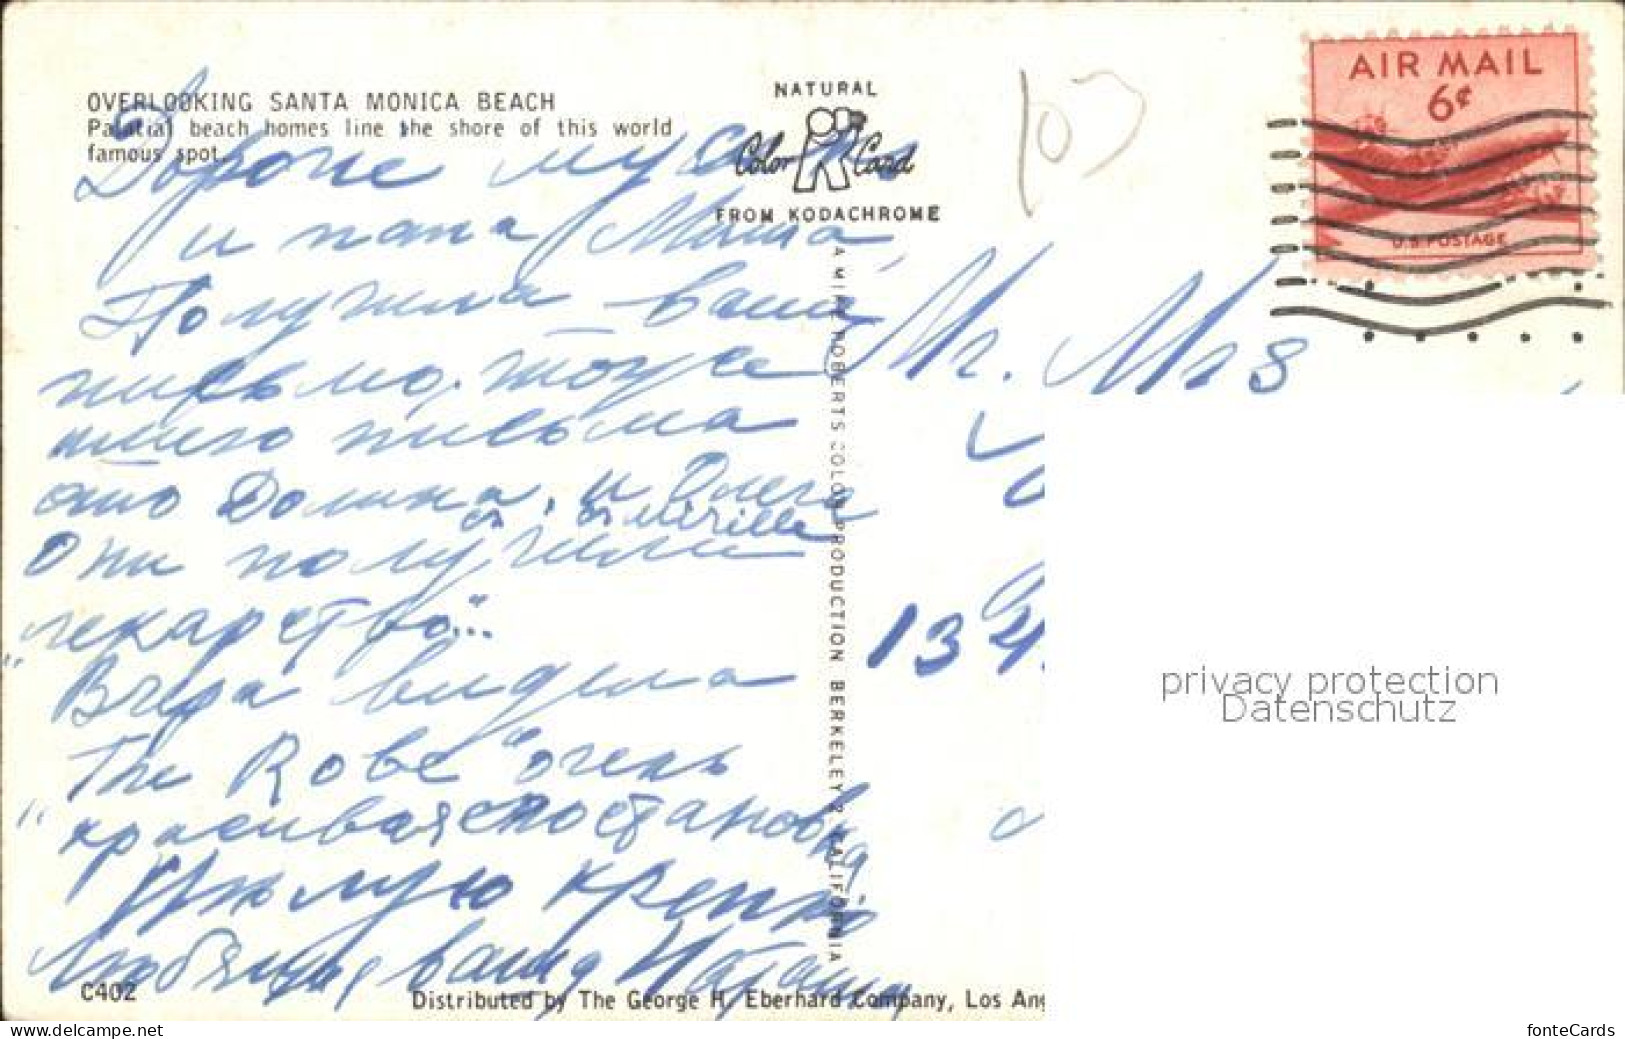 OVERLOOKING SANTA MONICA BEACH
Palatial beach homes line the shore of this world
famous spot.
NATURAL
Color Card
FROM KODACHROME
AIR MAIL
6¢
U.S. POSTAGE
и папа Маша,
Получила ваше
письмо, тоже
много письма
от и Олега
Они получили
"лекарство"...
Вчера видела
"The Robe" очень
красивая постановка
Целую крепко
Любящая ваша Наташа
Mr. Mrs
A MIKE ROBERTS COLOR PRODUCTION BERKELEY 2, CALIFORNIA
C402
Distributed by The George H. Eberhard Company, Los An
privacy protection
Datenschutz
www.delcampe.net
fonteCards